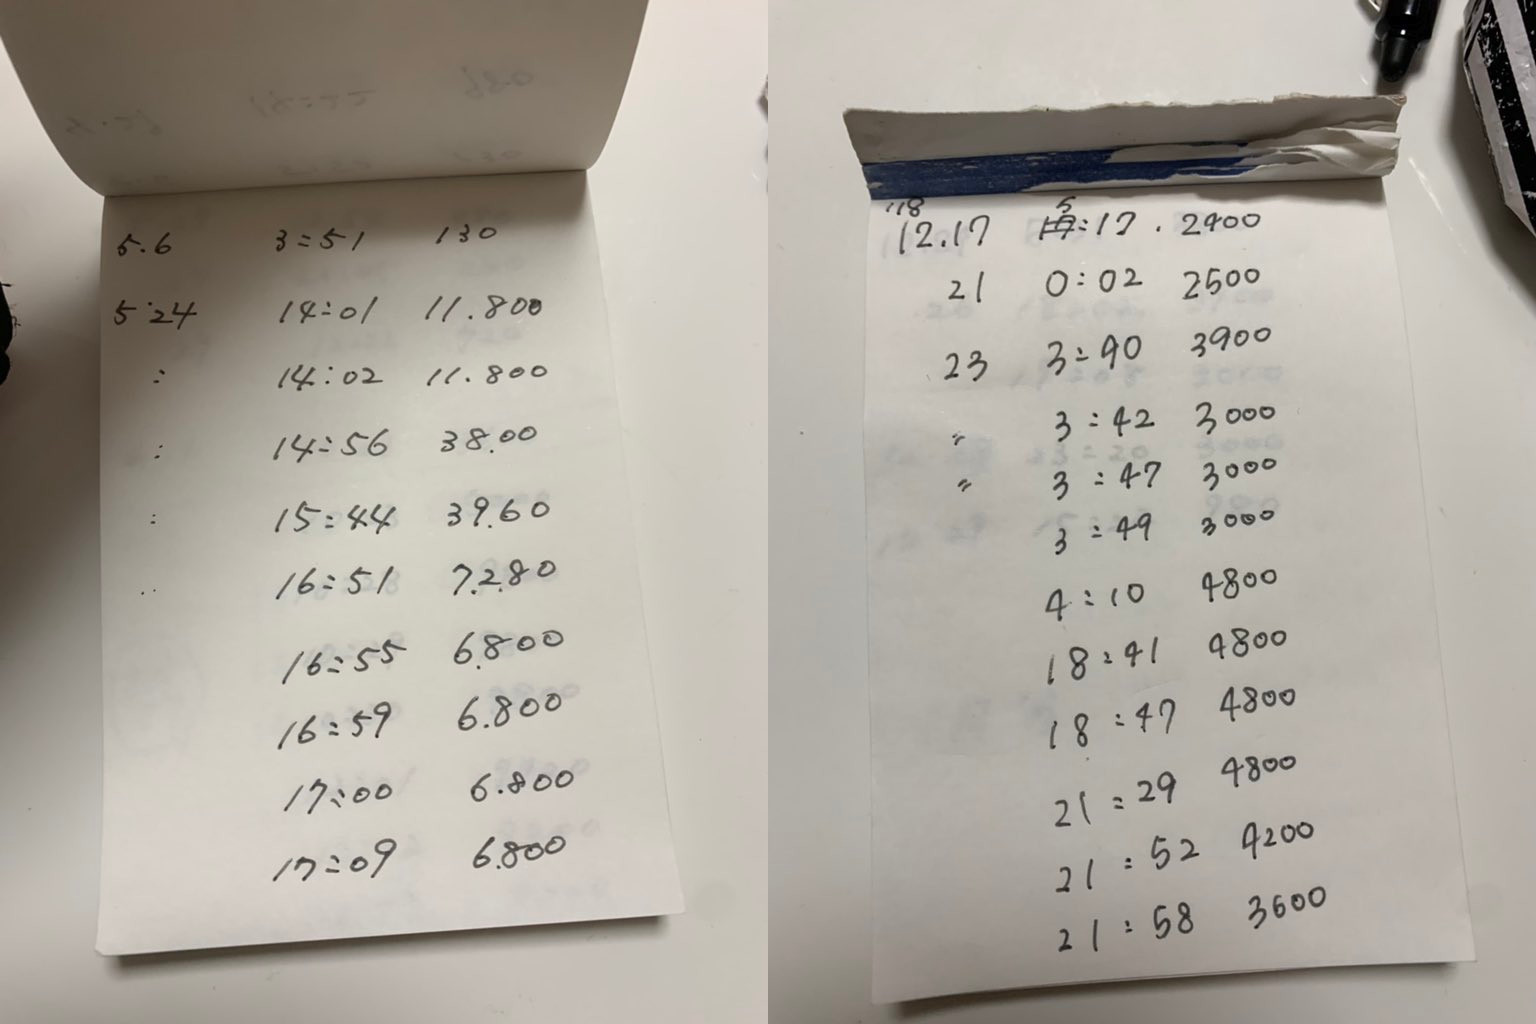 5.6 3:51 130
5.24 14:01 11.800
: 14:02 11.800
: 14:56 38.00
: 15:44 39.60
.. 16:51 7.280
16:55 6.800
16:59 6.800
17:00 6.800
17:09 6.800
'18 5
12.17 :17. 2400
21 0:02 2500
23 3:40 3900
〃 3:42 3000
〃 3:47 3000
3:49 3000
4:10 4800
18:41 4800
18:47 4800
21:29 4800
21:52 4200
21:58 3600